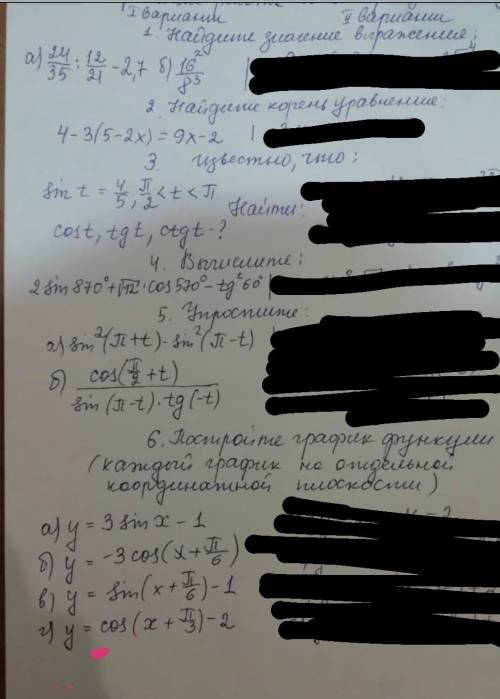 I варианти II варианти
1. Найдите значение выражения;
а) 24/35 : 12/21 - 2,7 б) 16²/8³
2. Найдите корень уравнение:
4-3(5-2x) = 9x-2
3. известно, что:
sin t = 4/5, π/2 < t < π
Найти:
cost, tgt, ctgt - ?
4. Вычислите;
2 sin 870° + √12 · cos 570° - tg² 60°
5. Упростите:
а) sin²(π+t) - sin²(π-t)
б) cos(π/2 + t) / sin(π-t) · tg(-t)
6. Постройте график функции
(каждый график на отдельной
координатной плоскости)
а) y = 3 sin x - 1
б) y = -3 cos(x + π/6)
в) y = sin(x + π/6) - 1
г) y = cos(x + π/3) - 2